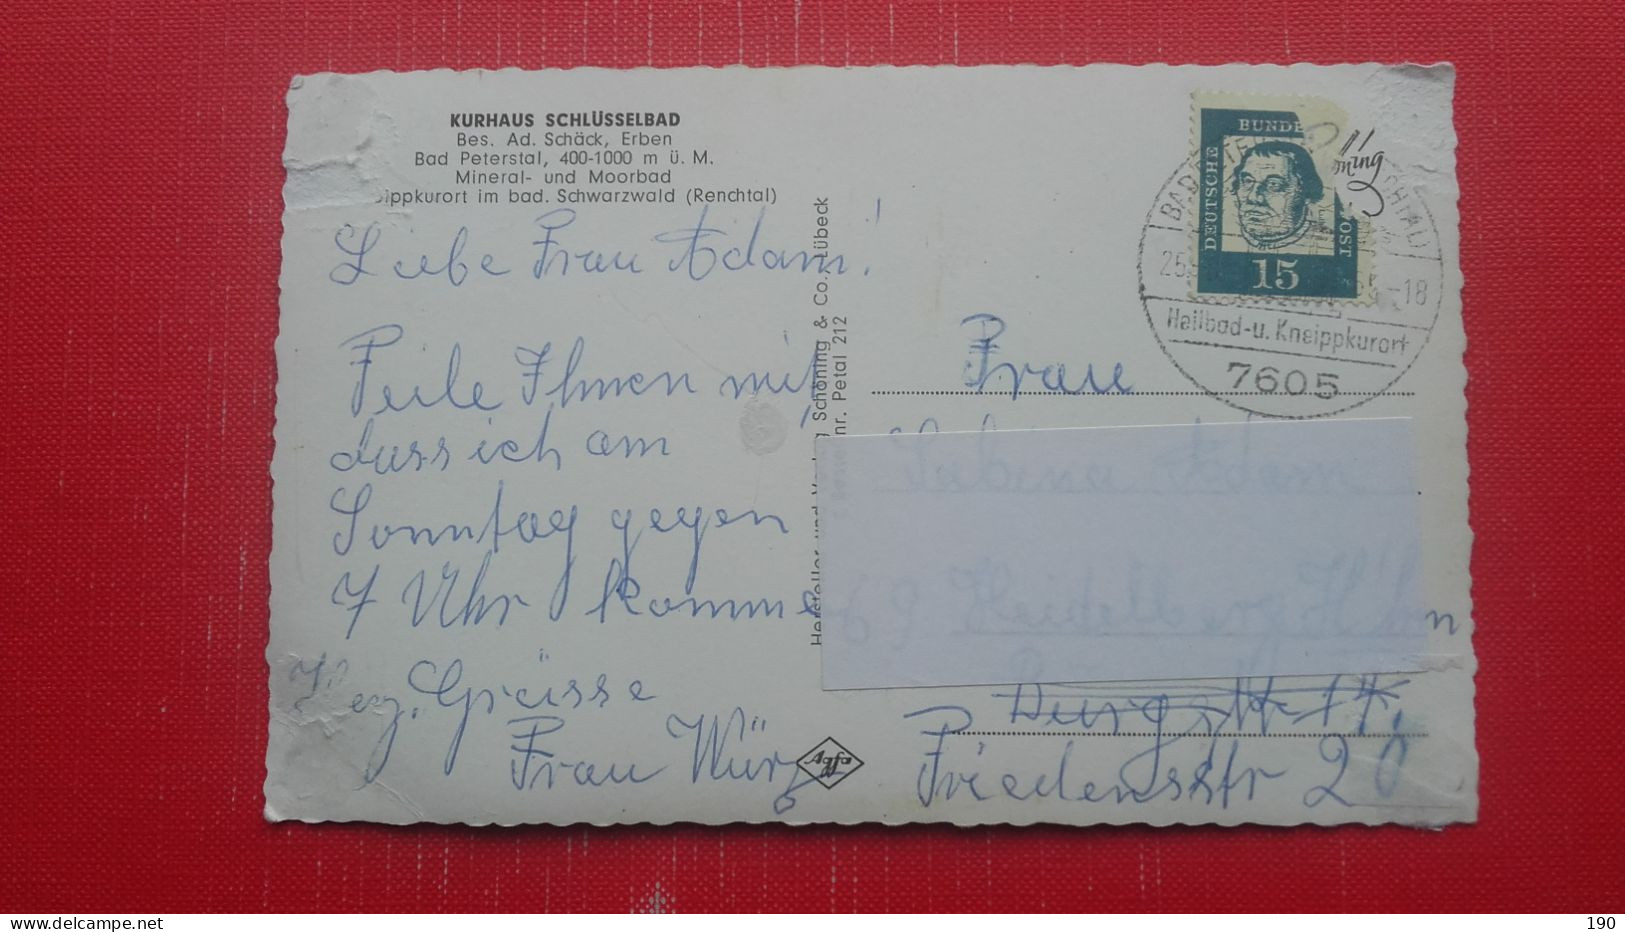 KURHAUS SCHLÜSSELBAD
Bes. Ad. Schäck, Erben
Bad Peterstal, 400-1000 m ü. M.
Mineral- und Moorbad
ippkurort im bad. Schwarzwald (Renchtal)
Liebe Frau Adam!
Teile Ihnen mit,
dass ich am
Sonntag gegen
7 Uhr komme
Herz. Grüsse
Frau Würz
Hersteller und Schöning & Co., Lübeck
nr. Petal 212
Agfa
DEUTSCHE
BUNDE
OST
15
25
-18
Heilbad-u. Kneippkurort
7605
Frau
Sabina Adam
69 Heidelberg
n
Burgstr. 14,
Friedensstr 20
190